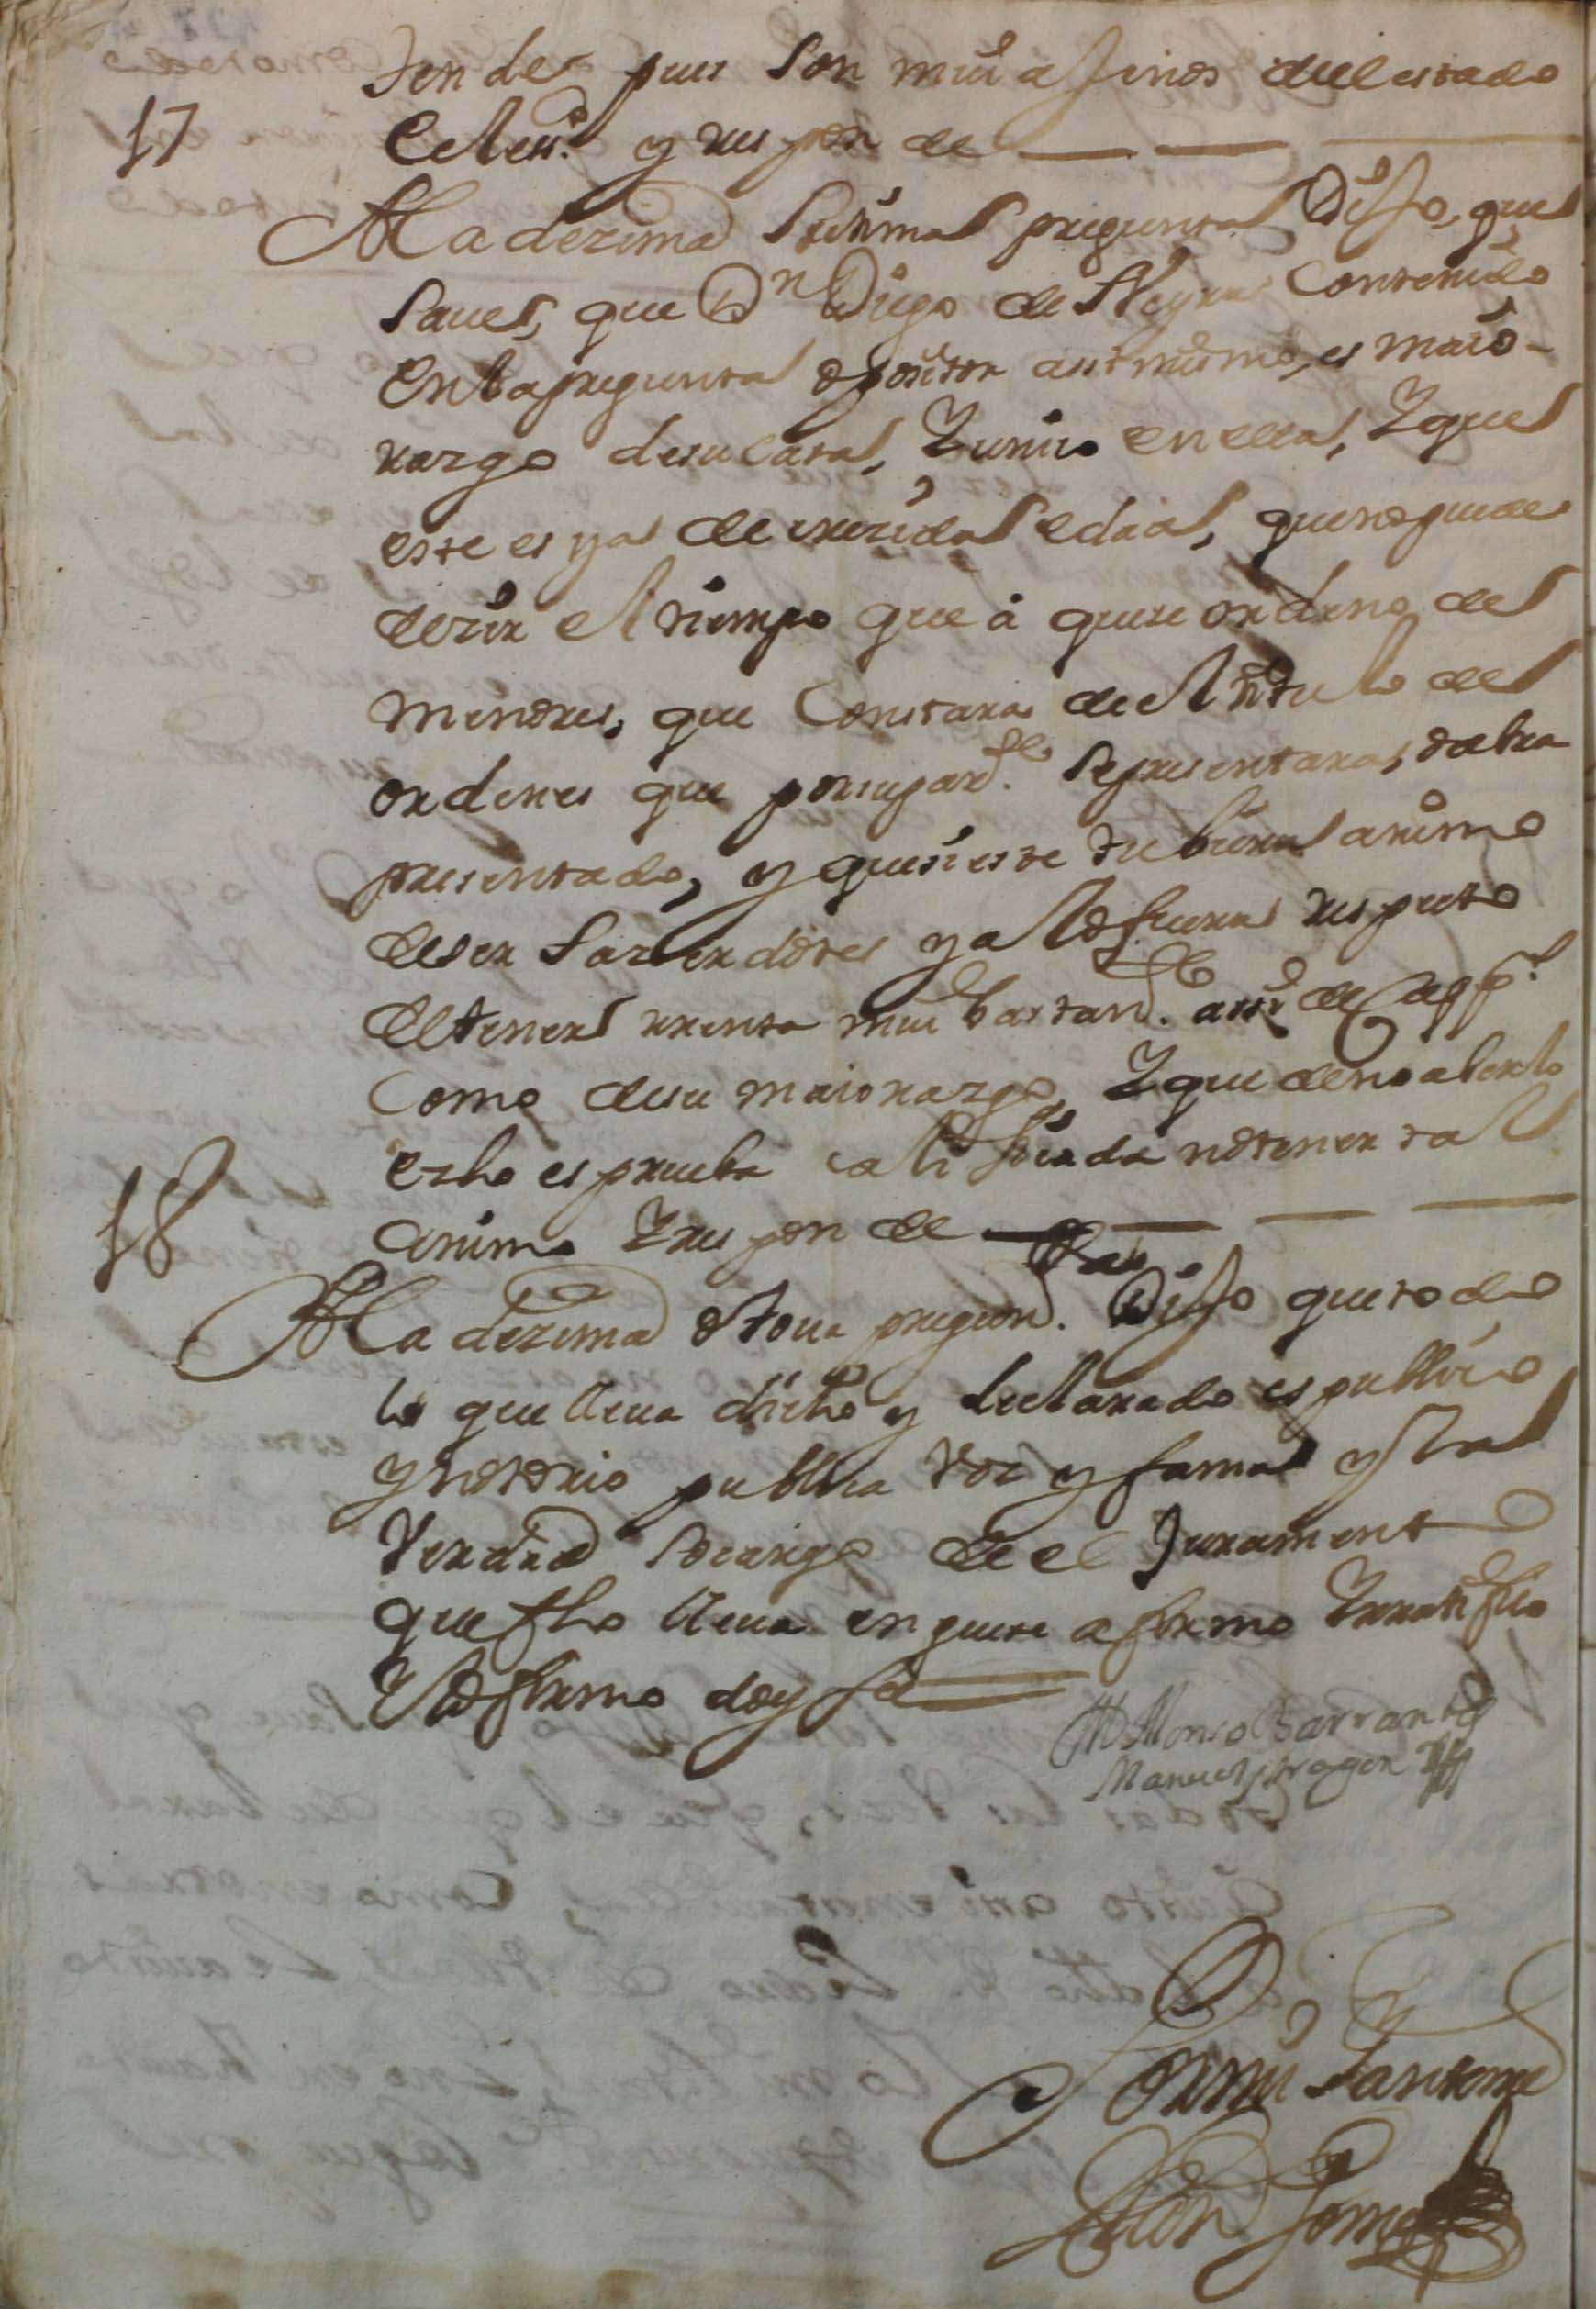 tender pues son mui afinos del estado
17 Ecclesi.co y responde
A la dezima septima pregunta Dijo, que
save, que Dn Diego de Neyra Contenido
en la pregunta opositor asimismo, es maio-
razgo de su casa, Y unico en ella, Y que
este es ya de crezida edad, que no puede
dezir el tiempo que à que se ordeno de
menores, que Constara de el titulo de
ordenes que por su parte se presentara, o abra
presentado, y que si este tubiera animo
de ser Sazerdote ya lo fuera respeto
de tener renta mui bastante. assi de Capp.a
Como de su maiorazgo, Y que de no aberlo
echo es prueba calificada no tener tal
animo Y responde
18 A la dezima octava pregunta. Dijo que todo
lo que lleva dicho y declarado es publico
y notorio publica voz y fama y la
Verdad so cargo de el Juramento
que fho lleva en que se afirmo Y rratifico
Y lo firmo doy fe
Alonso Barrantes
Manuel
Ante mi